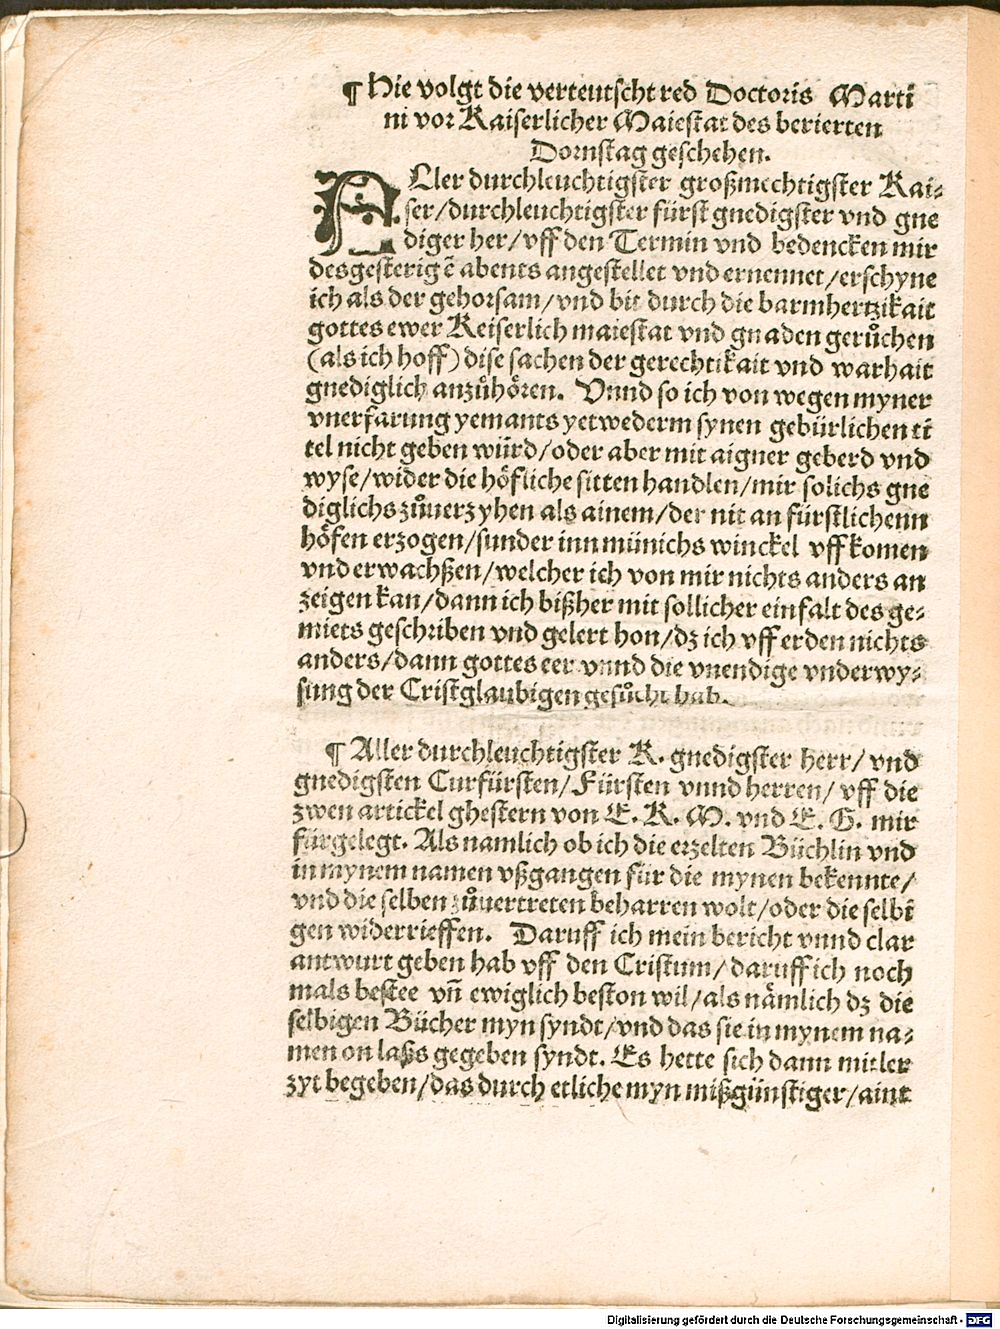 ¶ Hie volgt die verteutscht red Doctoris Martī
ni vor Kaiserlicher Maiestat des berierten
Dornstag geschehen.
ALler durchleuchtigster großmechtigster Kai⸗
ser/durchleuchtigster fürst gnedigster vnd gne
diger her/vff den Termin vnd bedencken mir
desgesterigē abents angestellet vnd ernennet/erschyne
ich als der gehorsam/vnd bit durch die barmhertzikait
gottes ewer Keiserlich maiestat vnd gnaden gerůchen
(als ich hoff) dise sachen der gerechtikait vnd warhait
gnediglich anzůhören. Vnnd so ich von wegen myner
vnerfarung yemants yetwederm synen gebürlichen tī
tel nicht geben würd/oder aber mit aigner geberd vnd
wyse/wider die höfliche sitten handlen/mir solichs gne
diglichs zůuerzyhen als ainem/der nit an fürstlichenn
höfen erzogen/sunder inn münichs winckel vffkomen
vnd erwachßen/welcher ich von mir nichts anders an
zeigen kan/dann ich bißher mit sollicher einfalt des ge⸗
miets geschriben vnd gelert hon/dz ich vff erden nichts
anders/dann gottes eer vnnd die vnendige vnderwy⸗
sung der Cristglaubigen gesůcht hab.
¶ Aller durchleuchtigster K. gnedigster herr/ vnd
gnedigsten Curfürsten/ Fürsten vnnd herren/ vff die
zwen artickel ghestern von E. K. M. vnd E. G. mir
fürgelegt. Als namlich ob ich die erzelten Büchlin vnd
in mynem namen vßgangen für die mynen bekennte/
vnd die selben zůuertreten beharren wolt/oder die selbī
gen widerrieffen. Daruff ich mein bericht vnnd clar
antwurt geben hab vff den Cristum/daruff ich noch
mals bestee vñ ewiglich beston wil/als nämlich dz die
selbigen Bücher myn syndt/vnd das sie in mynem na⸗
men on laßs gegeben syndt. Es hette sich dann mitler
zyt begeben/das durch etliche myn mißgünstiger/aint
Digitalisierung gefördert durch die Deutsche Forschungsgemeinschaft - DFG